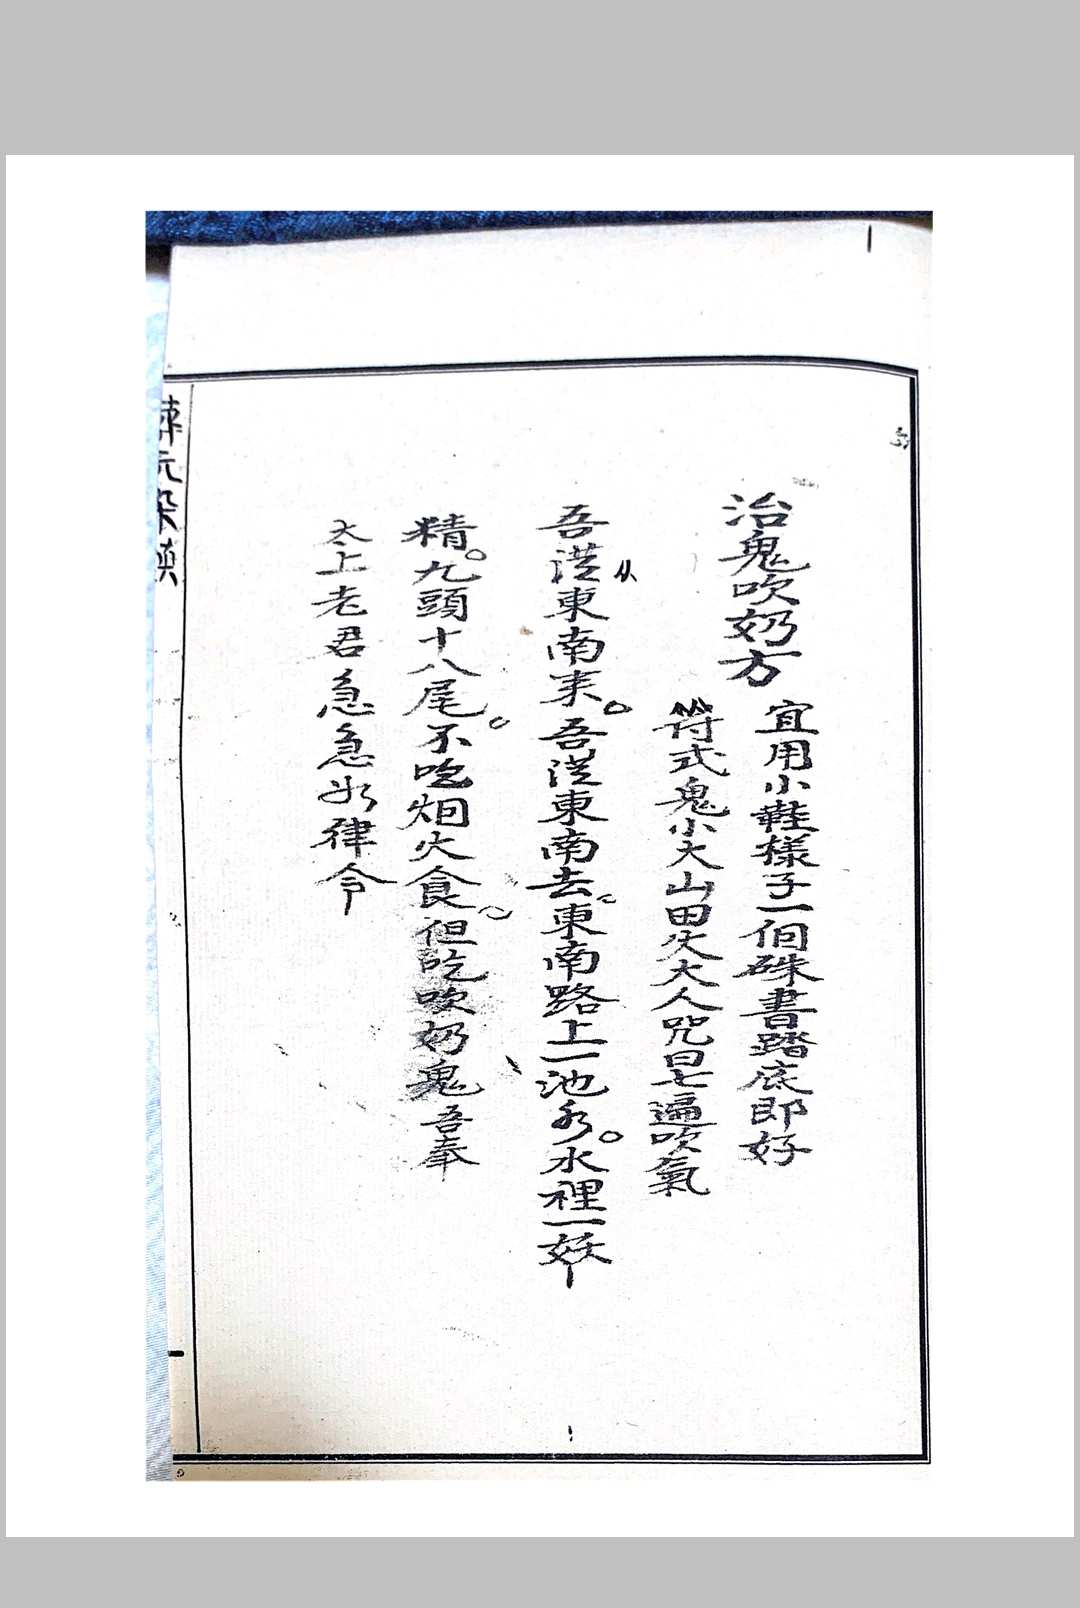 治鬼吹奶方
宜用小鞋樣子一個硃書踏底即好
符式鬼小大山田火大人咒曰七遍吹氣
吾從東南来。吾從東南去。東南路上一池水。水裡一妖
从
精。九頭十八尾。不吃烟火食。但吃吹奶鬼吾奉
太上老君急急如律令